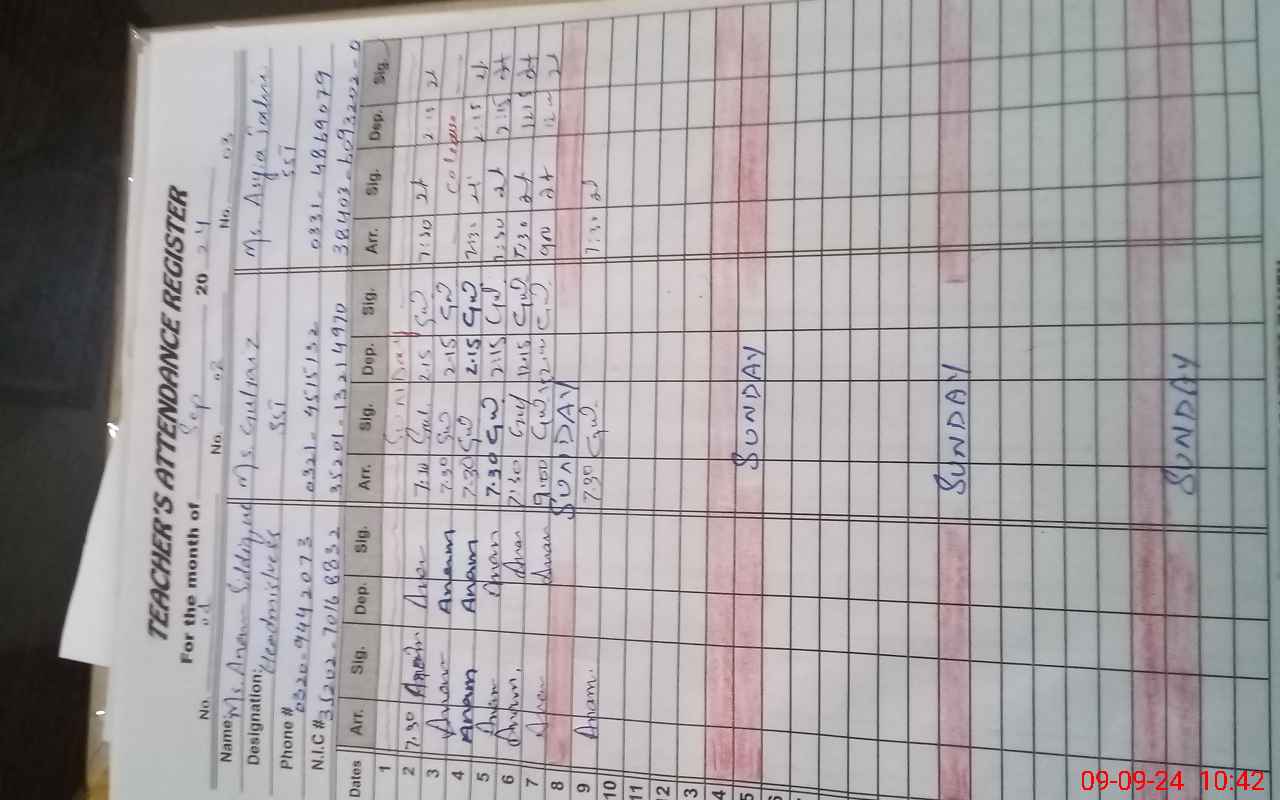 TEACHER'S ATTENDANCE REGISTER
For the month of Sep 20 24
No. 01 No. 02 No. 03
Name: Ms. Anam Siddique Ms. Gulnaz Ms. Asyia
Designation: Headmistress SST SST
Phone # 0320-9442073 0321-4515132 0331-4869079
N.I.C # 35202-7016833-2 35201-1321497-0 38403-6093202-0
Dates Arr. Sig. Dep. Sig. Arr. Sig. Dep. Sig. Arr. Sig. Dep. Sig.
1 SUNDAY
2 7.30 Anam Anam 7:30 Gul. 2.15 Gul 7:30 2:15
3 Anam Anam 7.30 Gul 2.15 Gul
4 Anam Anam 7.30 Gul 2.15 Gul 7:30 2:15
5 Anam Anam 7.30 Gul 2:15 Gul 7:30 2:15
6 Anam. Anam 7:30 Gul 12.15 Gul 7:30 12:15
7 Anam Anam 9:00 Gul. 12.00 Gul. 9:00 12:00
8 SUNDAY
9 Anam. 7.30 Gul. 7:30
10
11
12
3
4
5 SUNDAY
6
SUNDAY
SUNDAY
09-09-24 10:42